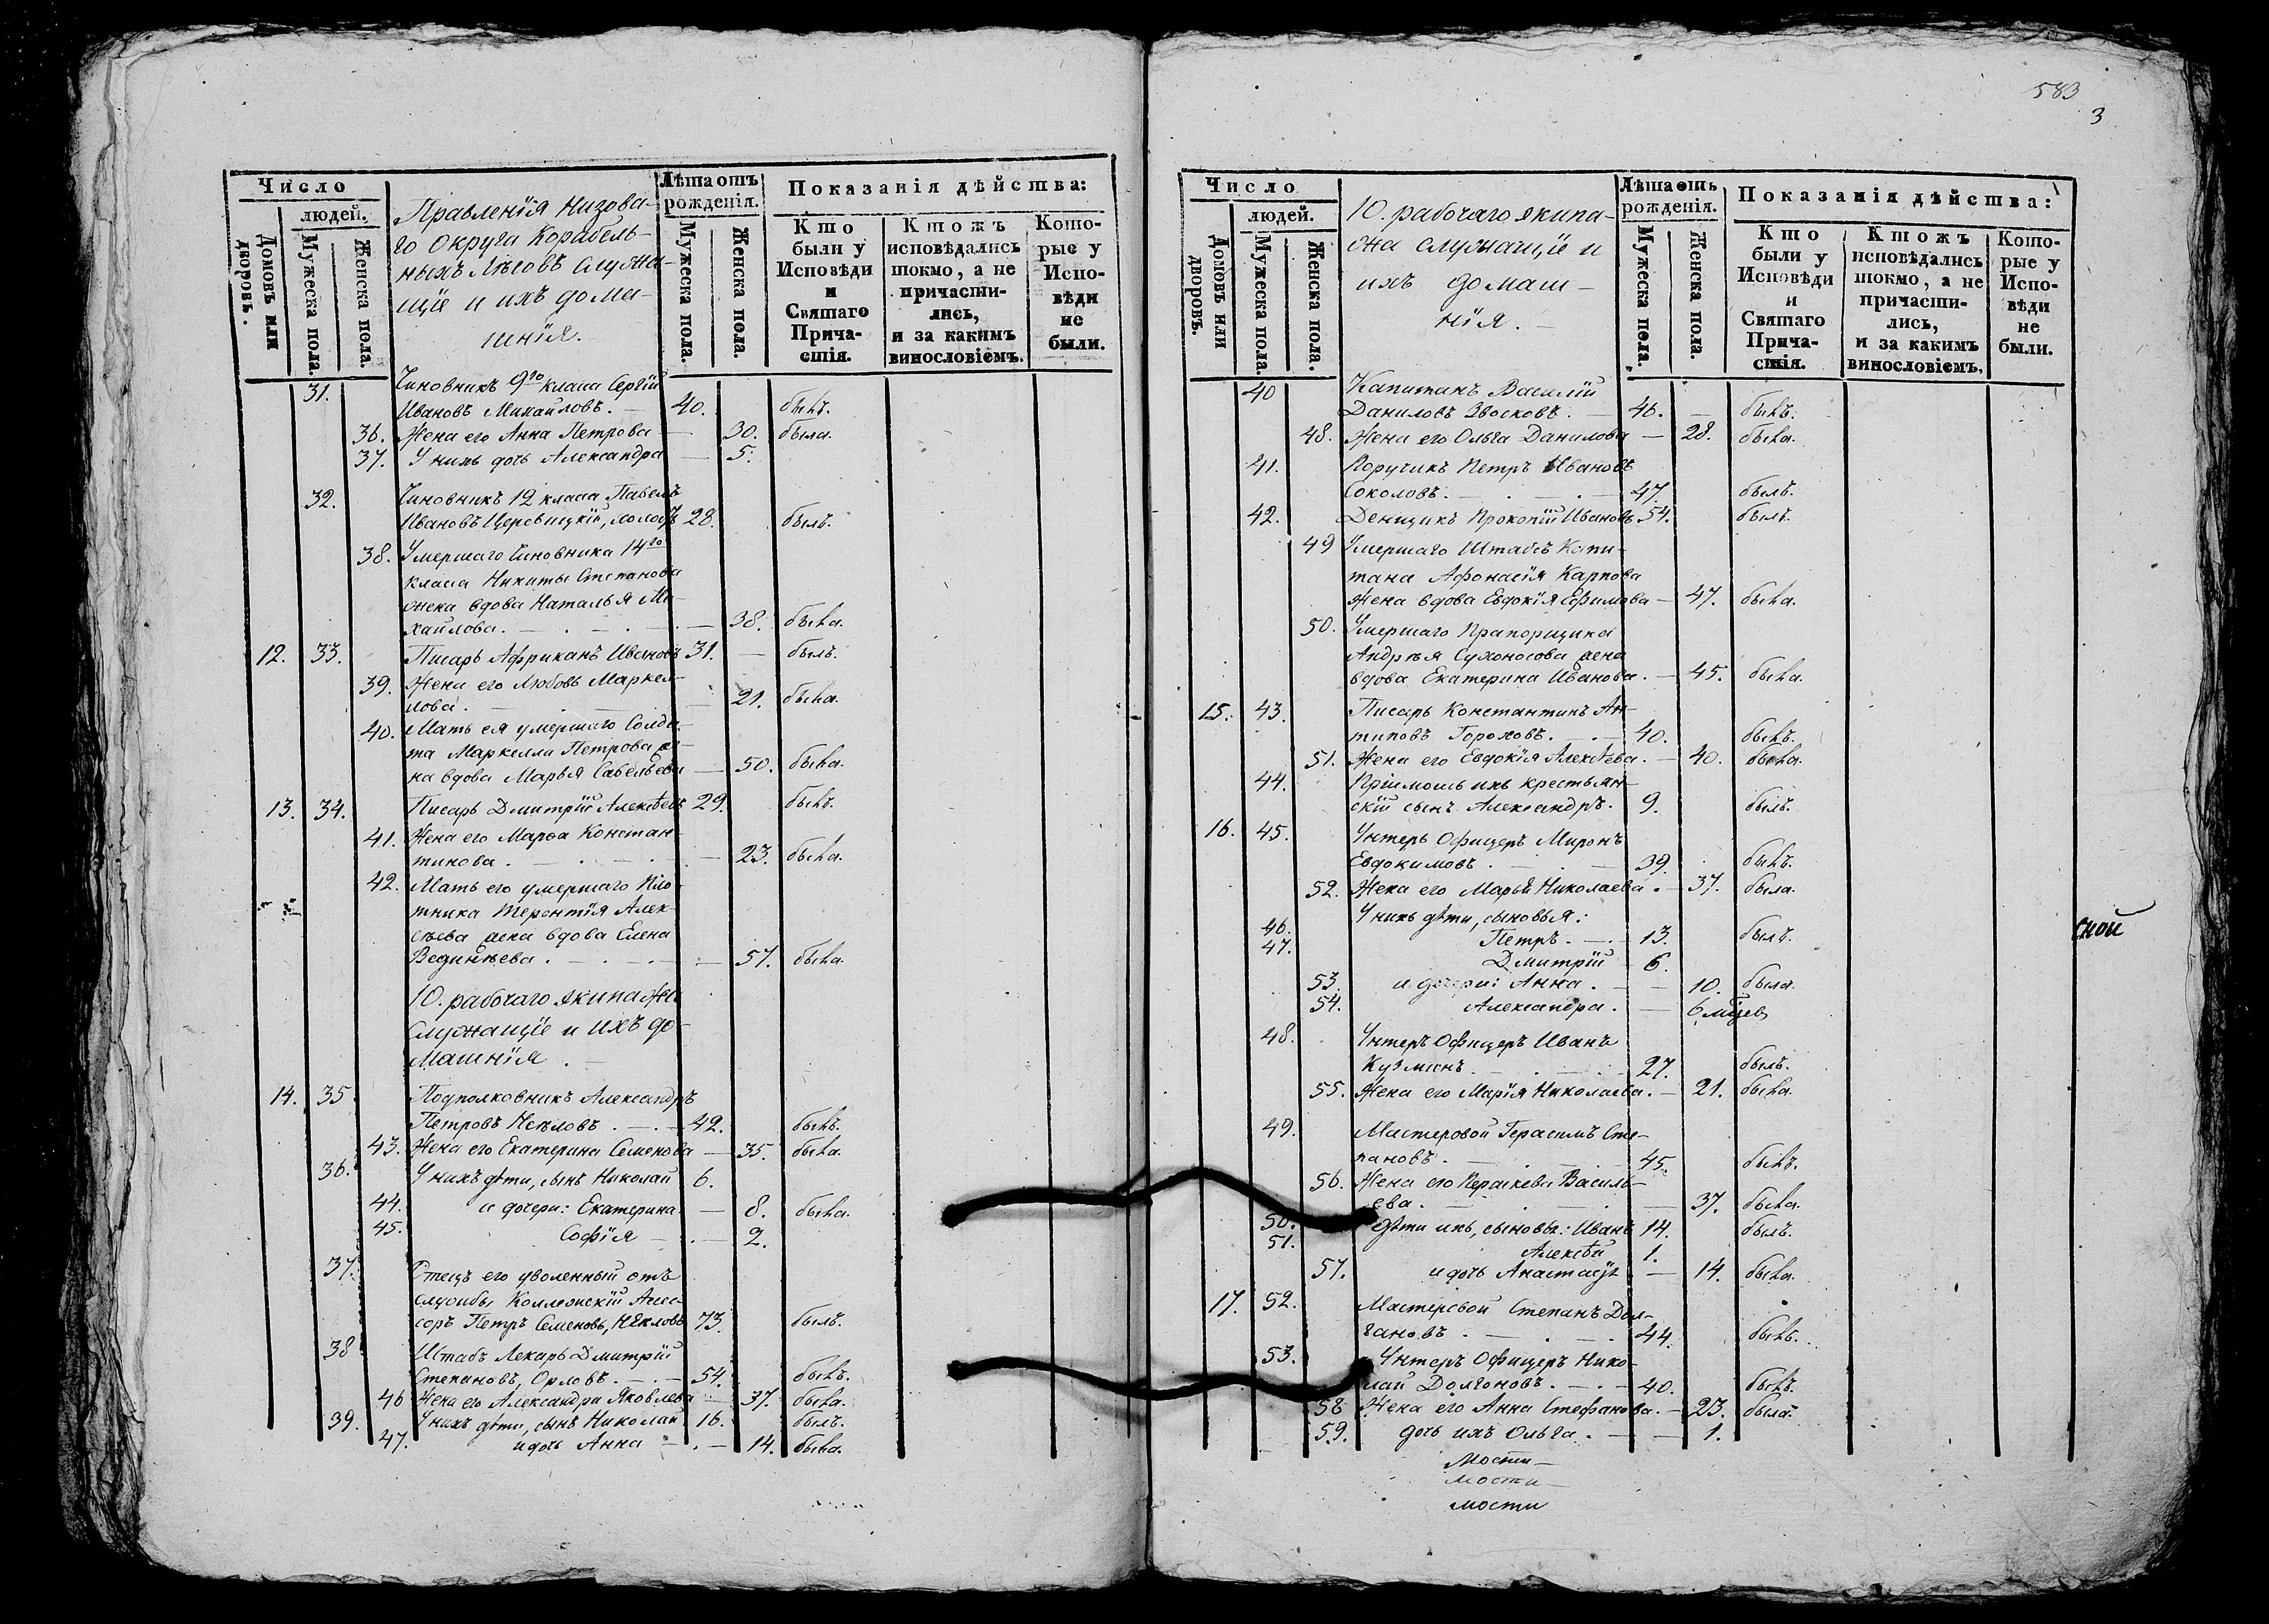 583
3
Число
людей.
Домовъ или дворовъ.
Мужеска пола.
Женска пола.
Правленія Низова-
го Округа Корабель-
ныхъ Лѣсовъ Служа-
щіе и ихъ дома-
шнія.
Лѣта отъ рожденія.
Мужеска пола.
Женска пола.
Показанія дѣйства:
Кто были у Исповѣди и Святаго Прича-стія.
Ктожъ исповѣдались токмо, а не причасти-лись, и за какимъ винословіемъ.
Кото-рые у Испо-вѣди не были.
31. Чиновникъ 9го класа Сергій
Ивановъ Михайловъ. 40. былъ.
36. Жена его Анна Петрова 30. была.
37. У нихъ дочь Александра 5.
32. Чиновникъ 12 класа Павелъ
Ивановъ 28. былъ.
38. Умершаго Чиновника 14го
класа Никиты Степанова
жена вдова Наталья Ми-
хайлова. 38. была.
12. 33. Писарь Африканъ Ивановъ 31. былъ.
39. Жена его Любовь Маркел-
лова. 21. была.
40. Мать ея умершаго Солда-
та Маркелла Петрова же-
на вдова Марья Савельева 50. была.
13. 34. Писарь Дмитрій Алексѣевъ 29. былъ.
41. Жена его Марѳа Констан-
тинова. 23. была.
42. Мать его умершаго Пло-
тника Терентія Алек-
сѣева жена вдова Елена
57. была.
10. рабочаго экипажа
Служащіе и ихъ до-
машнія.
14. 35. Подполковникъ Александръ
Петровъ Неѣловъ. 42. былъ.
43. Жена его Екатерина Семенова 35. была.
36. У нихъ дѣти, сынъ Николай 6.
44. и дочери: Екатерина 8. была.
45. Софія 2.
37. Отецъ его уволенный отъ
службы Коллежскій Асес-
соръ Петръ Семеновъ, 73. былъ.
38. Штабъ Лекарь Дмитрій
Степановъ, Орловъ. 54. былъ.
46 Жена его Александра Яковлева 37. была.
39. У нихъ дѣти, сынъ Николай 16. былъ.
47. и дочь Анна 14. была.
Число
людей.
Домовъ или дворовъ.
Мужеска пола.
Женска пола.
10. рабочаго экипа-
жа служащіе и
ихъ домаш-
нія.
Лѣта отъ рожденія.
Мужеска пола.
Женска пола.
Показанія дѣйства:
Кто были у Исповѣди и Святаго Прича-стія.
Ктожъ исповѣдались токмо, а не причасти-лись, и за какимъ винословіемъ.
Кото-рые у Испо-вѣди не были.
40 Капитанъ Василій
Даниловъ Звосковъ. 46. былъ.
48. Жена его Ольга Данилова 28. была.
41. Поручикъ Петръ Ивановъ
Соколовъ. 47. былъ.
42. Денщикъ Прокопій Ивановъ 54. былъ.
49 Умершаго Штабсъ Капи-
тана Афонасія Карпова
жена вдова Евдокія Ефимова 47. была.
50. Умершаго Прапорщика
Андрея Сухоносова жена
вдова Екатерина Иванова. 45. была.
15. 43. Писарь Константинъ Ан-
типовъ Гороховъ. 40. былъ.
51. Жена его Евдокія Алексѣева. 40. была.
44. Пріимошъ ихъ крестьян-
скій сынъ Александръ. 9. былъ.
16. 45. Унтеръ Офицеръ Миронъ
Евдокимовъ. 39. былъ.
52. Жена его Марья Николаева. 37. была.
У нихъ дѣти, сыновья:
46. Петръ. 13. былъ.
47. Дмитрій 6.
53. и дочери: Анна. 10. была.
54. Александра. 6 мѣсец
48. Унтеръ Офицеръ Иванъ
Кузминъ. 27. былъ.
55. Жена его Марія Николаева. 21. была.
49. Мастеровой Герасимъ Сте-
пановъ. 45. былъ.
56. Жена его Параскева Василь-
ева. 37. была.
50. дѣти ихъ, сыновья: Иванъ 14. былъ.
51. Алексѣй 1.
57. и дочь Анастасія 14. была.
17. 52. Мастеровой Степанъ Дол-
гановъ. 44. былъ.
53. Унтеръ Офицеръ Нико-
лай Долгоновъ. 40. былъ.
58 Жена его Анна Стефанова. 23. была.
59. дочь ихъ Ольга. 1.
мости
мости
мости
ской